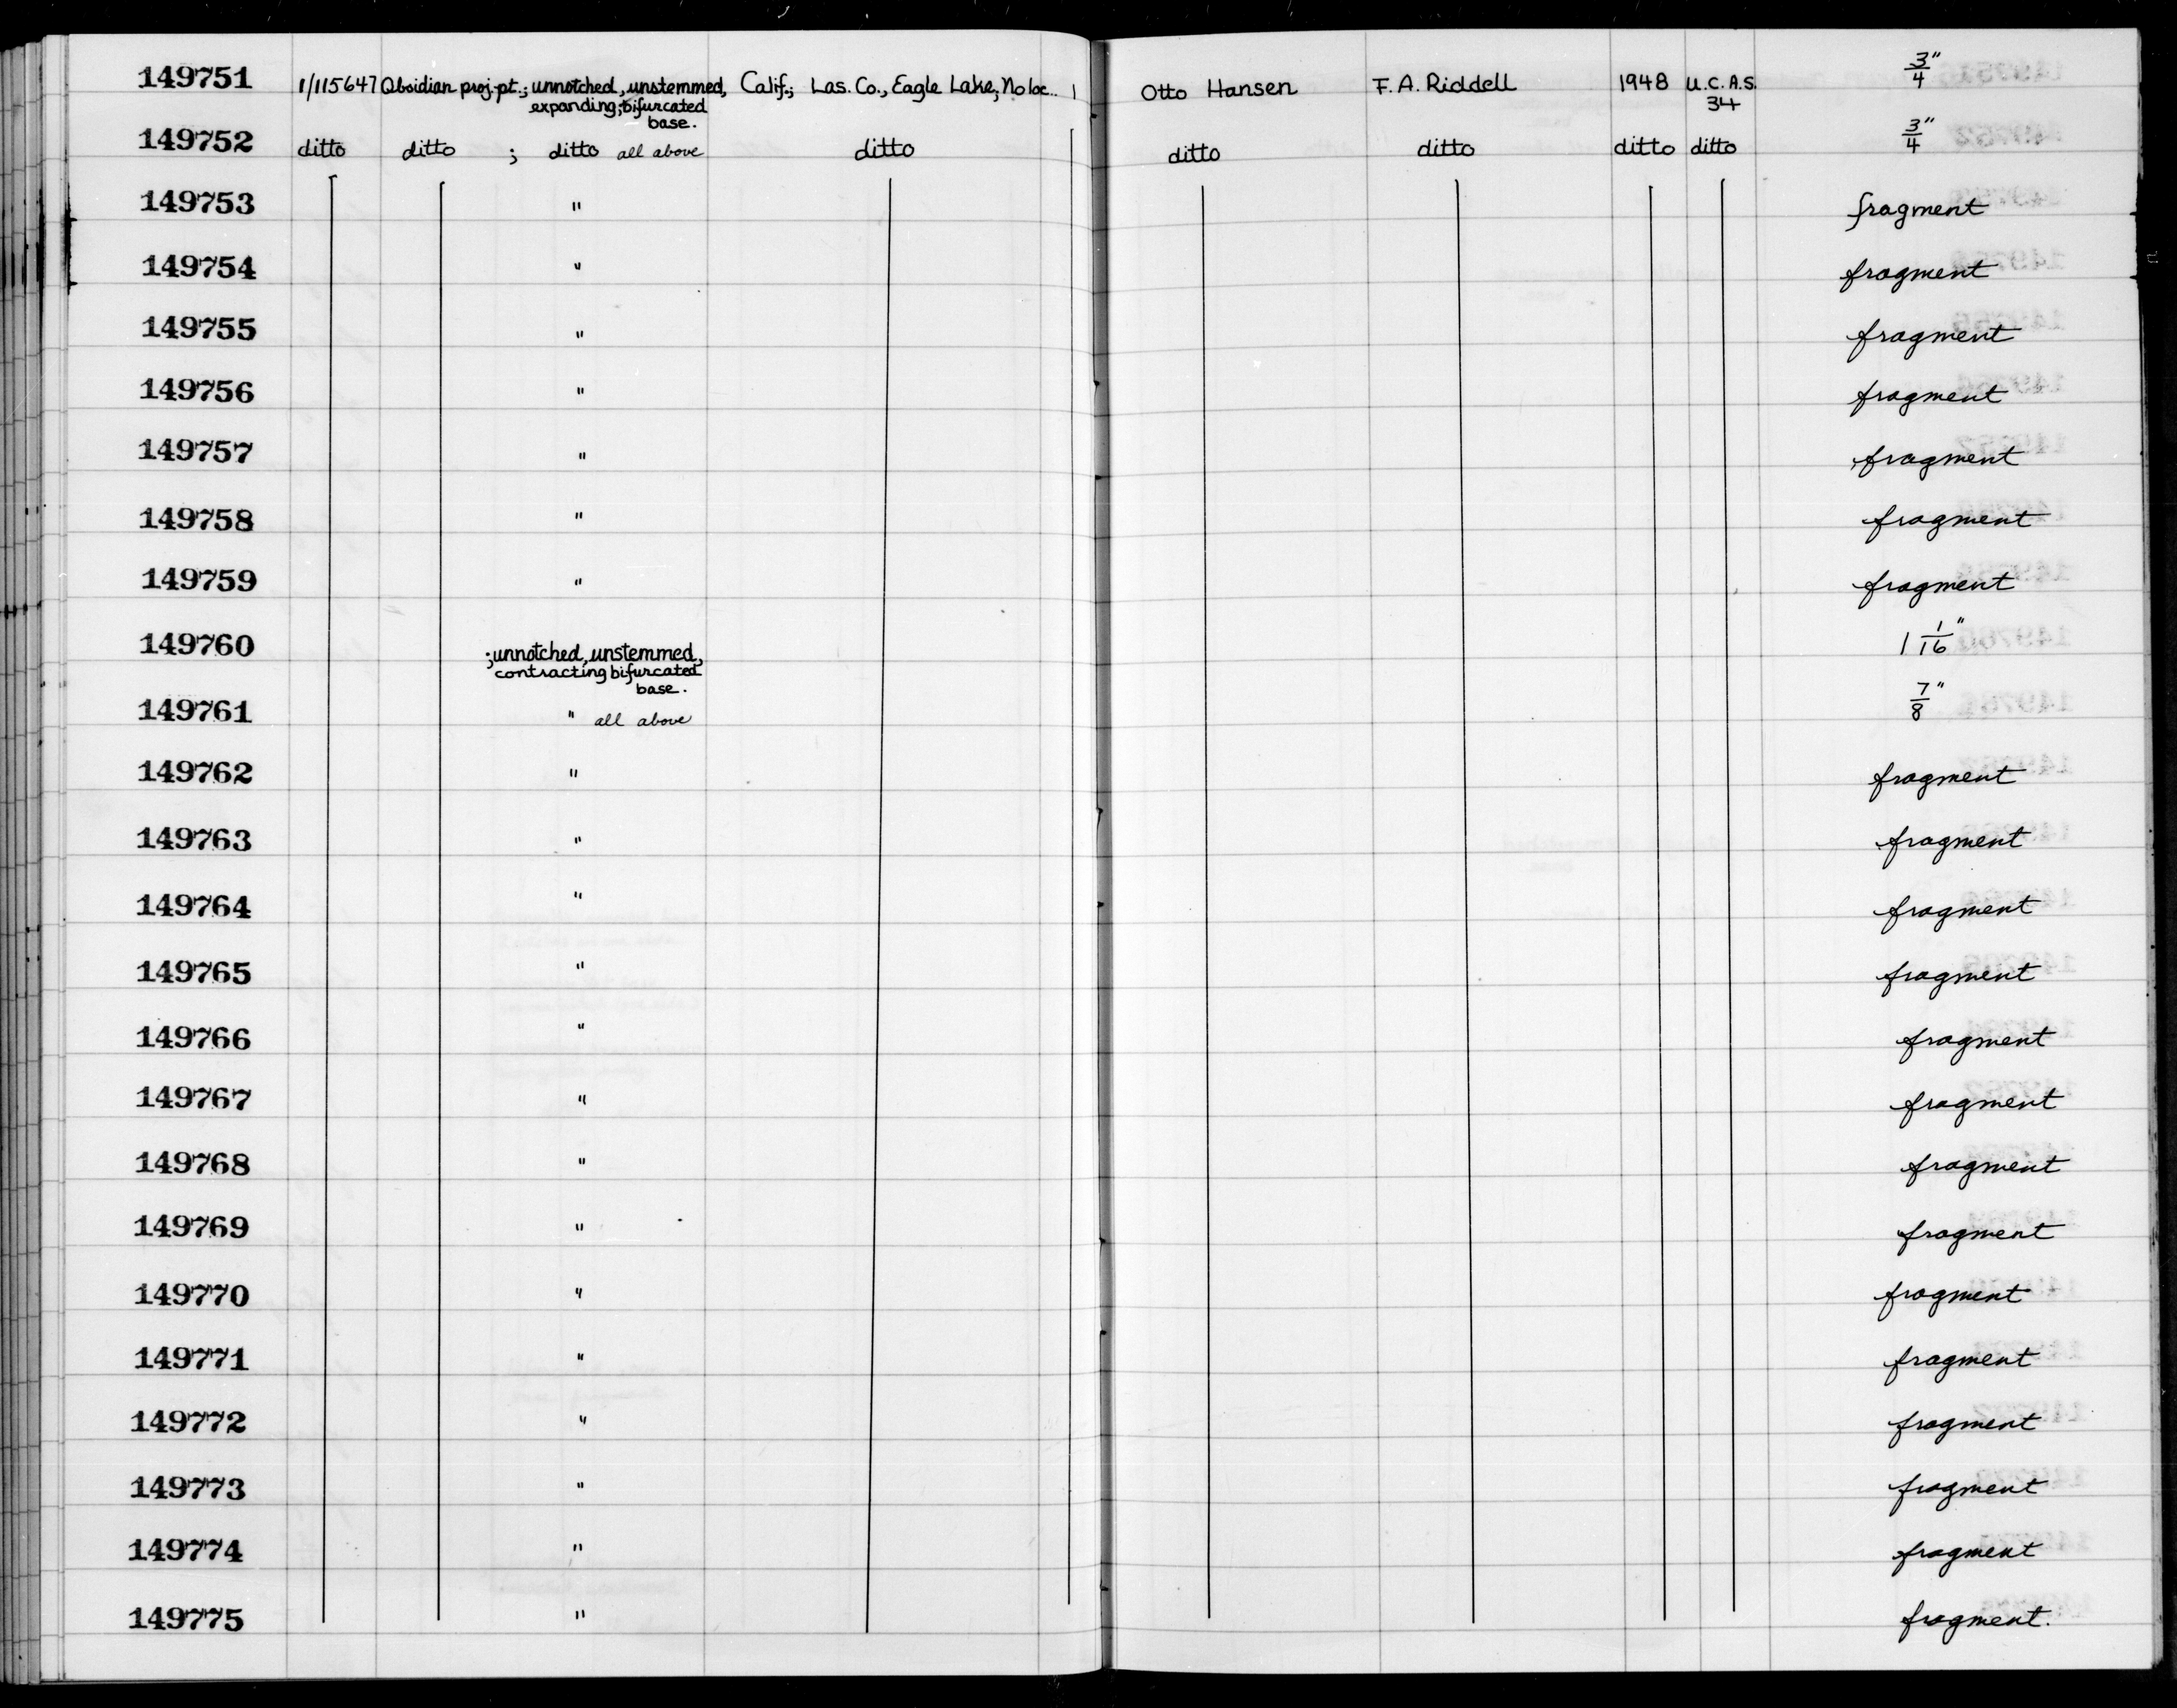 149751 1/115647 Obsidian proj. pt.; unnotched, unstemmed, Calif.; Las. Co., Eagle Lake; No loc.. 1 Otto Hansen F. A. Riddell 1948 U.C.A.S. 3/4"
expanding; bifurcated 34
base.
149752 ditto ditto ; ditto all above ditto ditto ditto ditto ditto 3/4"
149753 " fragment
149754 " fragment
149755 " fragment
149756 " fragment
149757 " fragment
149758 " fragment
149759 " fragment
149760 ; unnotched, unstemmed, 1 1/16"
contracting bifurcated
base.
149761 " all above 7/8"
149762 " fragment
149763 " fragment
149764 " fragment
149765 " fragment
149766 " fragment
149767 " fragment
149768 " fragment
149769 " fragment
149770 " fragment
149771 " fragment
149772 " fragment
149773 " fragment
149774 " fragment
149775 " fragment.